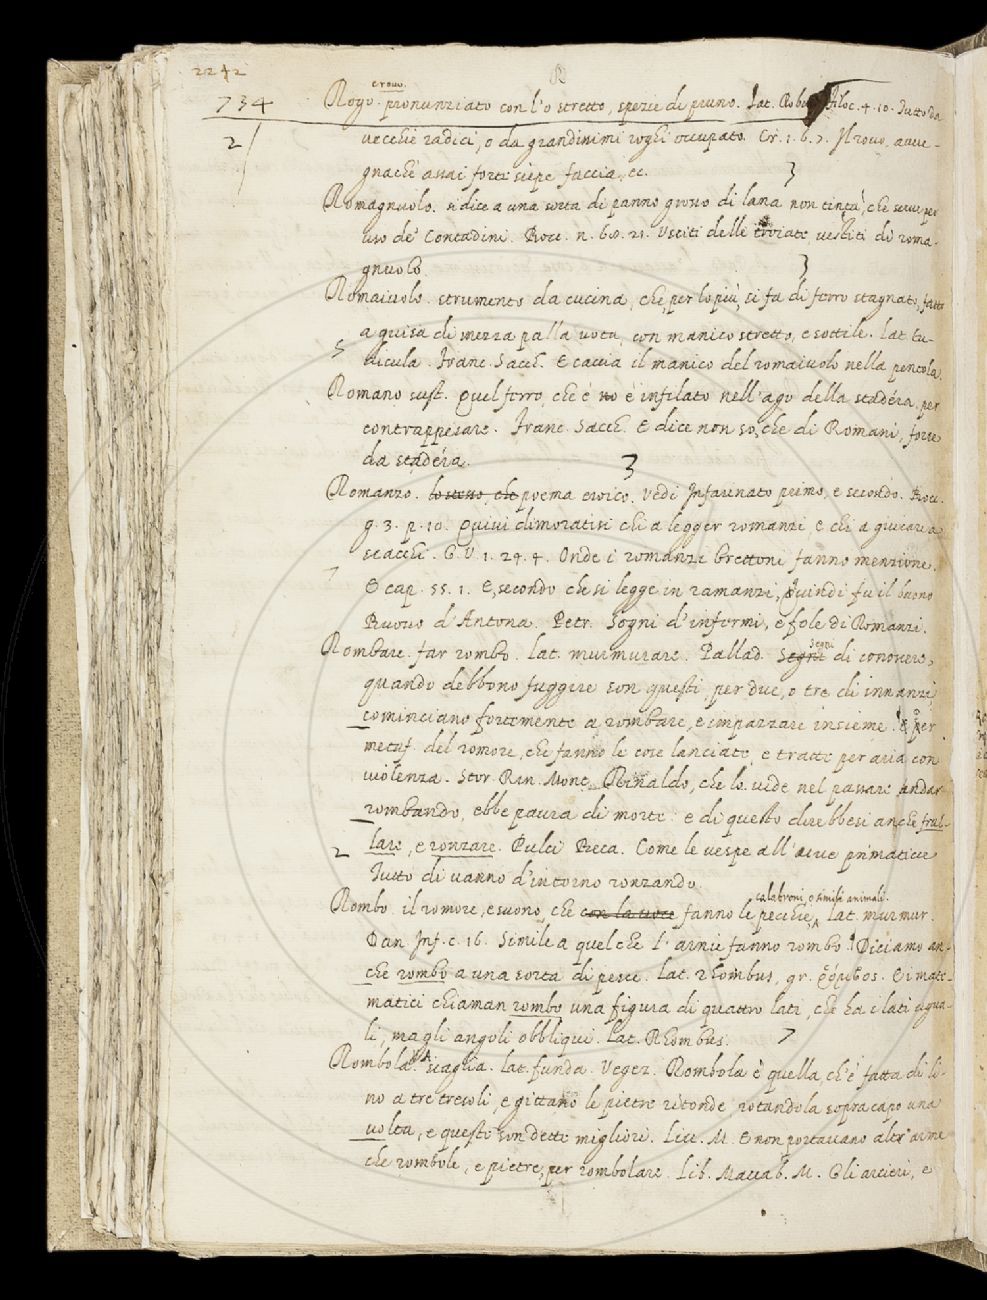 2242
R
734
e rovo.
Rogo. pronunziato con l'o stretto, spezie di pruno. Lat. Rubus Filoc. 4. 10. Tutto da
2
vecchie radici, o da grandissimi roghi occupato. Cr. 1. 6. 7. Il rovo, avve-
gnachè assai forte siepe faccia, ec. 3
Romagnuolo. si dice a una sorta di panno grosso di lana non tinta, che serve per
uso de' Contadini. Bocc. n. 60. 21. Vestiti delle troiate, vestiti di roma-
gnuolo. 3
Romaiuolo. strumento da cucina, che, per lo più, si fa di ferro stagnato, fatto
a guisa di mezza palla vota, con manico stretto, e sottile. Lat. Tu-
5
dicula. Franc. Sacch. E caccia il manico del romaiuolo nella pentola.
Romano sust. Quel ferro, che è è infilato nell'ago della stadéra, per
contrappesare. Franc. Sacch. E dice non so, che di Romani, forse
da stadéra. 3
Romanzo. lo stesso, che poema eroico, Vedi Infarinato primo, e secondo. Bocc.
g. 3. p. 10. Quivi dimoratisi chi a legger romanzi, e chi a giucare a
scacchi. G. V. 1. 24. 4. Onde i romanzi brettoni fanno menzione.
7
E cap. 55. 1. E, secondo che si legge in ramanzi, Quindi fu il buono
Buovo d'Antona. Petr. Sogni d'infermi, e fole di Romanzi.
Rombare. far rombo. Lat. murmurare. Pallad. Segni Segni di conoscere,
quando debbono fuggire son questi, per due, o tre dì innanzi
cominciano fortemente a rombare, e impazzare insieme. E per
metaf. del romore, che fanno le cose lanciate, e tratte per aria con
violenza. Stor. Rin. Mont. Rinaldo, che lo vide nel passare andar
rombando, ebbe paura di morte: e di questo direbbesi anche frul-
2
lare, e ronzare. Pulci Beca. Come le vespe all'uve primaticce
Tutto dì vanno d'intorno ronzando.
calabroni, o simili animali.
Rombo. il romore, e suono, che con la voce fanno le pecchie, Lat. murmur.
Dan Inf. c. 16. Simile a quel che l'arnie fanno rombo. Diciamo an-
che rombo a una sorta di pesce. Lat. rhombus, gr. ῥόμβος. E i mate-
matici chiaman rombo una figura di quattro lati, che ha i lati ugua-
li, ma gli angoli obbliqui. Lat. Rhombus. 7
Rombola. scaglia. Lat. funda. Vegez. Rombola è quella, ch'è fatta di li-
no a tre tresoli, e gittano le pietre ritonde rotandola sopra capo una
volta, e queste son dette migliori. Liv. M. E non portavano altr'arme
che rombole, e pietre, per rombolare. Lib. Maccab. M. Gli arcieri, e